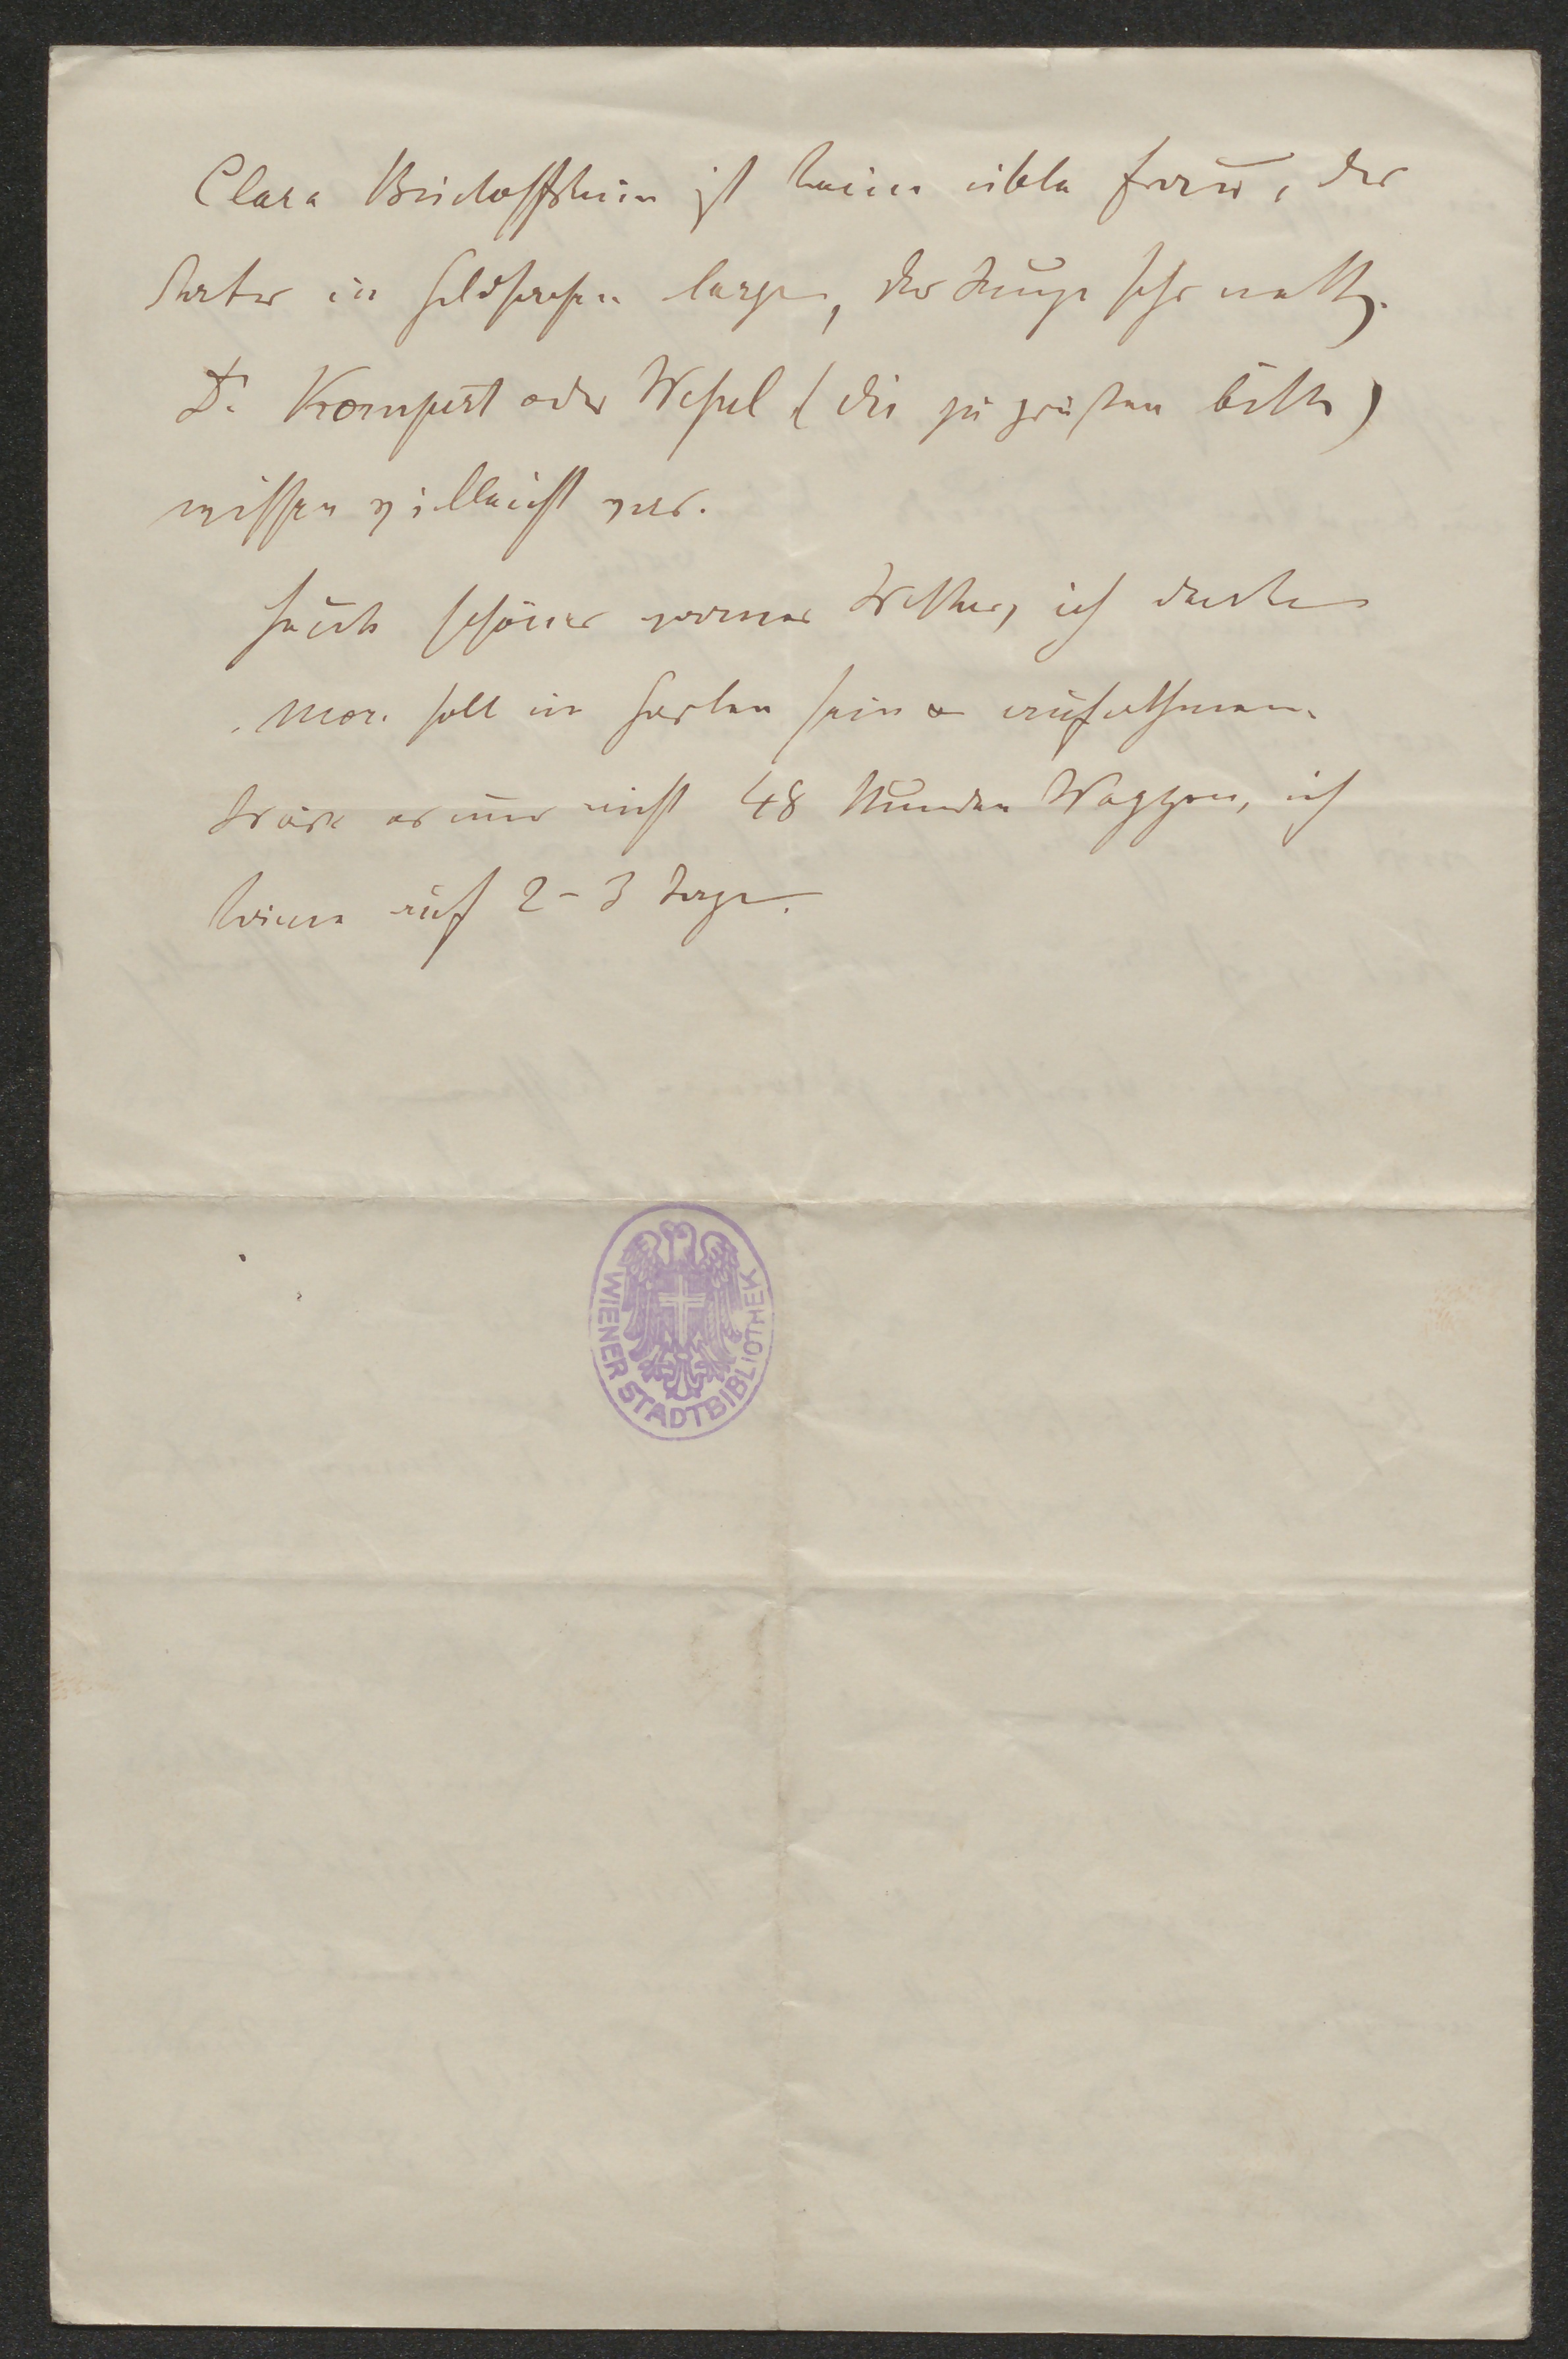 Clara Bischoffsheim ist keine üble Frau, der
Vater in Geldsachen large, der Junge sehr nett.
Dr. Kompert oder Weſsel (die zu grüßen bitte)
wissen vielleicht was.
Heute schönes warmes Wetter, ich denke
Mor. soll in Garten sein & aufathmen.
Wäre es nur nicht 48 Stunden Waggon, ich
käme auf 2–3 Tage.
WIENER STADTBIBLIOTHEK